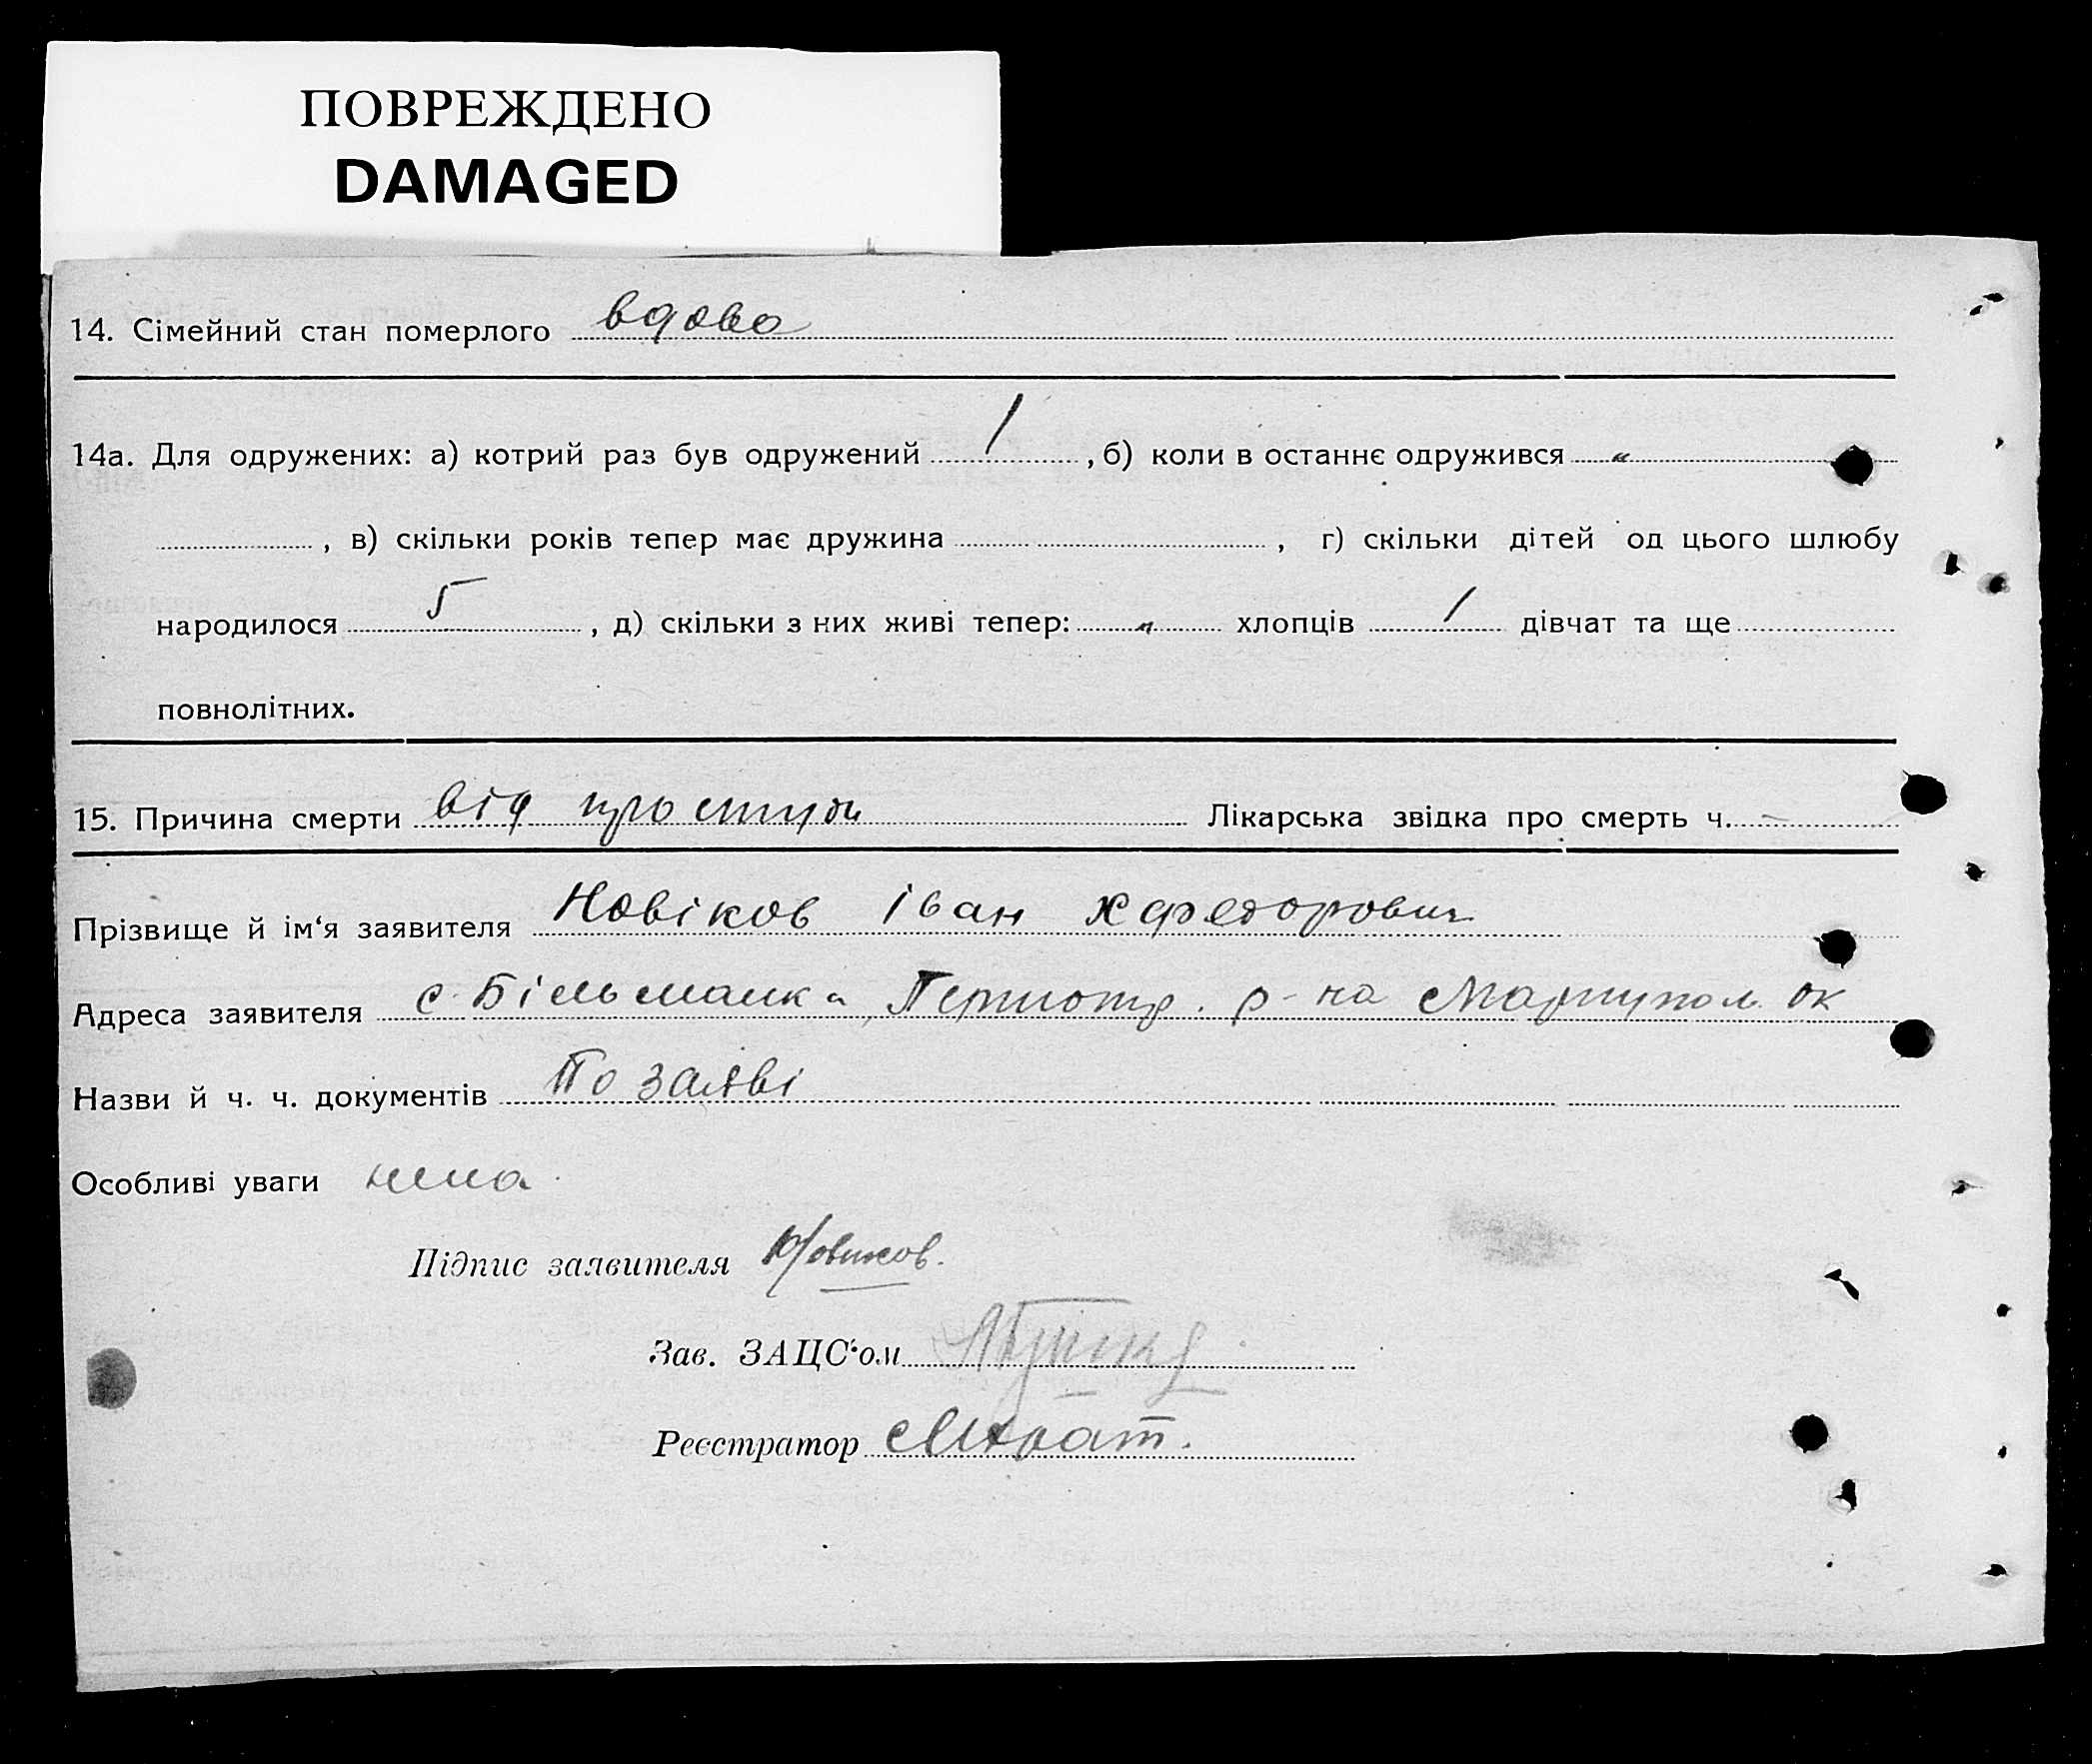 ПОВРЕЖДЕНО
DAMAGED
14. Сімейний стан померлого вдова
14а. Для одружених: а) котрий раз був одружений 1, б) коли в останнє одружився "
, в) скільки років тепер має дружина , г) скільки дітей од цього шлюбу
народилося 5, д) скільки з них живі тепер: " хлопців 1 дівчат та ще
повнолітних.
15. Причина смерти від простуди Лікарська звідка про смерть ч. –
Прізвище й ім‘я заявителя Новіков Іван
Адреса заявителя с. Більманка, р-на Маріупол. ок
Назви й ч. ч. документів По заяві
Особливі уваги нема
Підпис заявителя Новиков.
Зав. ЗАЦС‘ом
Реєстратор